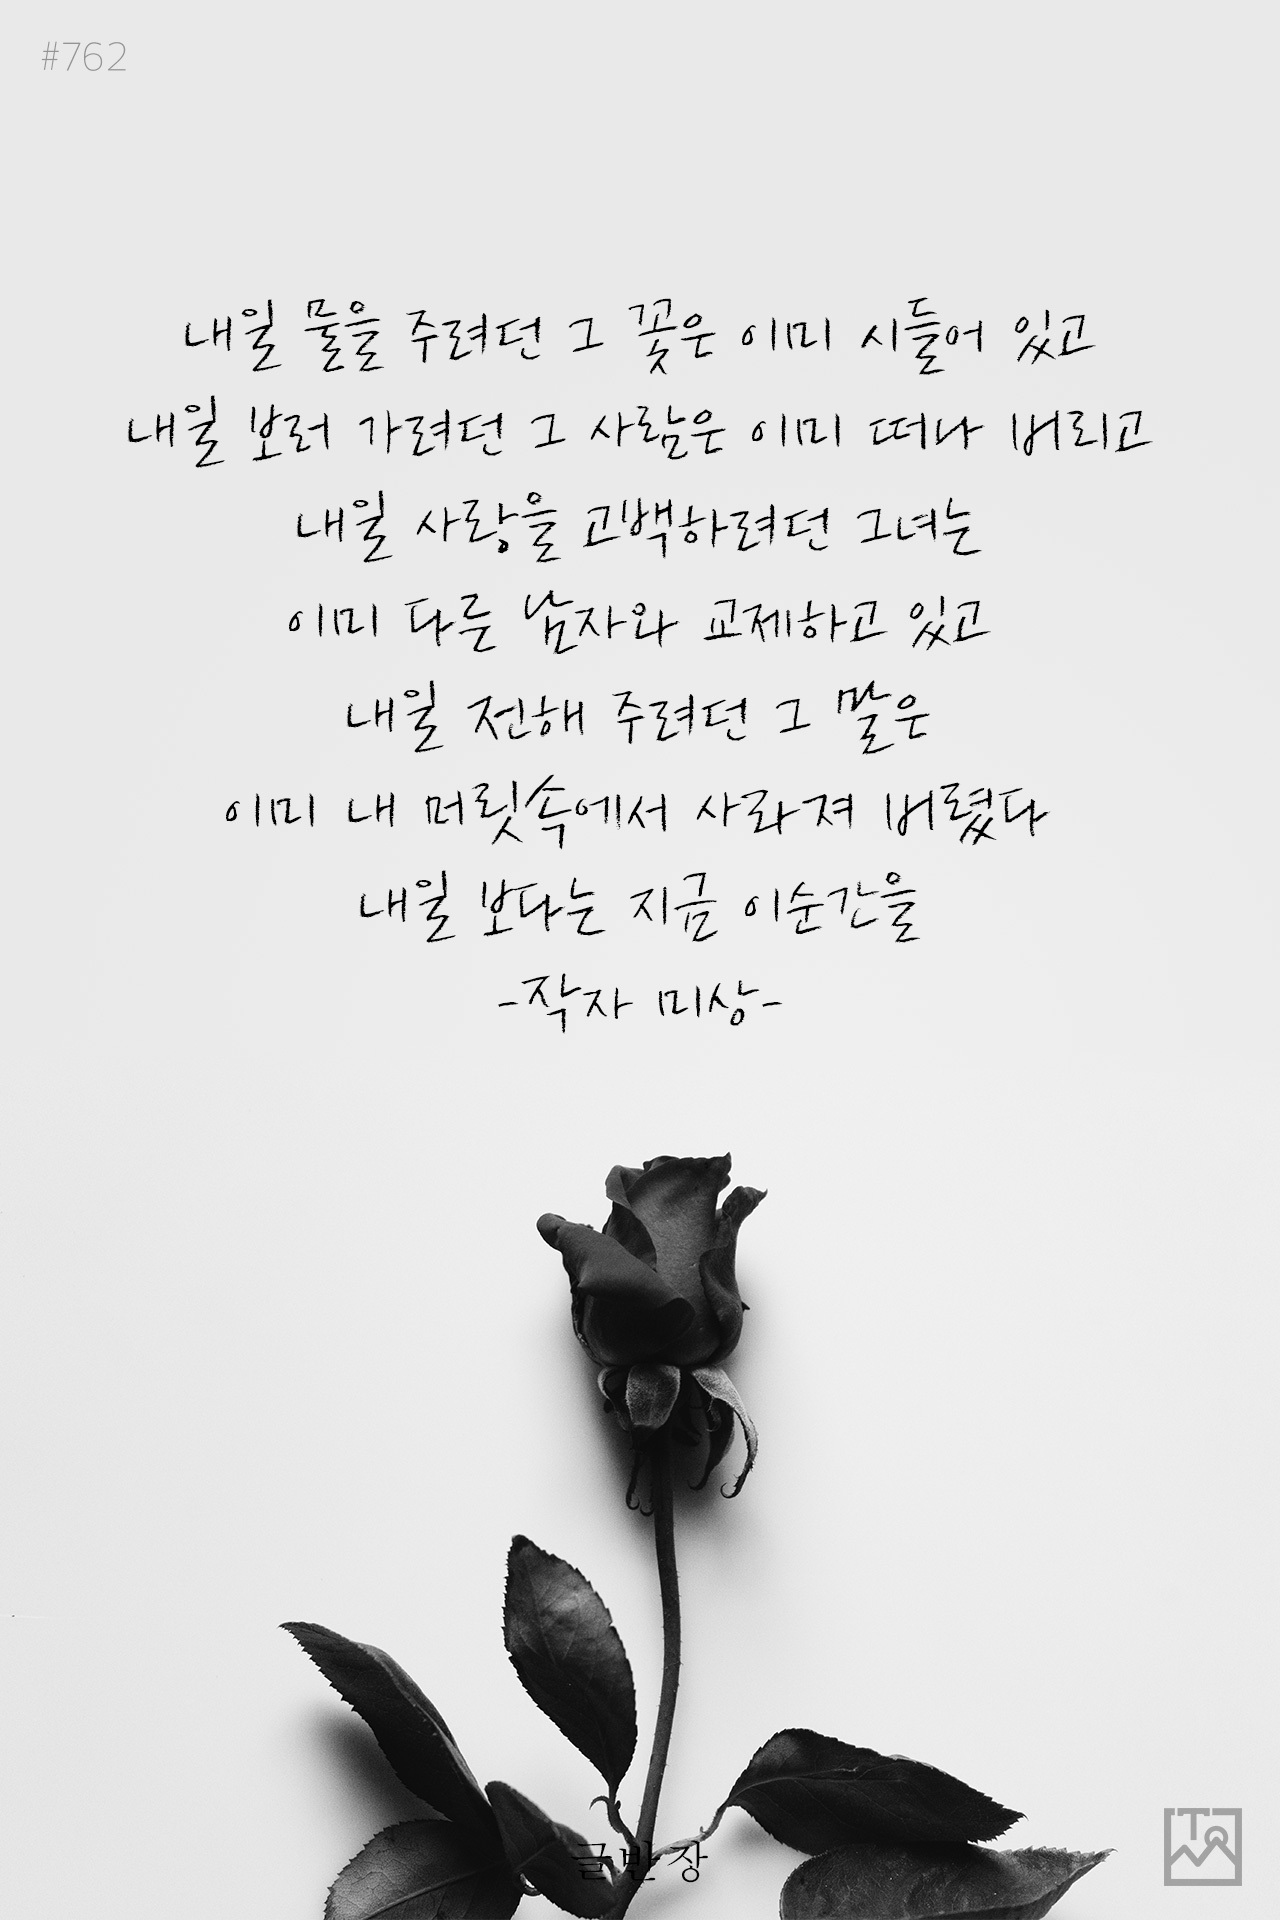 #762
내일 물을 주려던 그 꽃은 이미 시들어 있고
내일 보러 가려던 그 사람은 이미 떠나 버리고
내일 사랑을 고백하려던 그녀는
이미 다른 남자와 교제하고 있고
내일 전해 주려던 그 말은
이미 내 머릿속에서 사라져 버렸다
내일 보다는 지금 이순간을
-작자 미상-
글반장